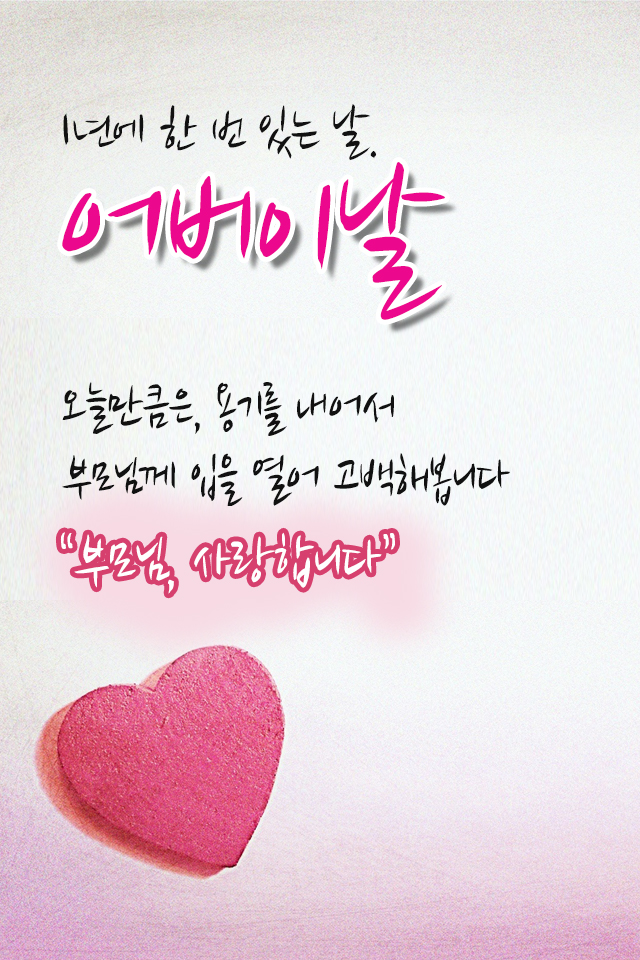 1년에 한 번 있는 날.
어버이날
오늘만큼은, 용기를 내어서
부모님께 입을 열어 고백해봅니다
“부모님, 사랑합니다”